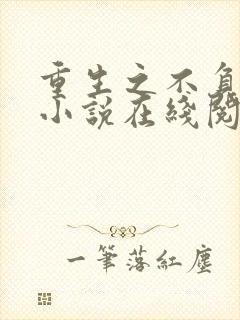 重生之不负
小说在綫阅
一筆落紅塵